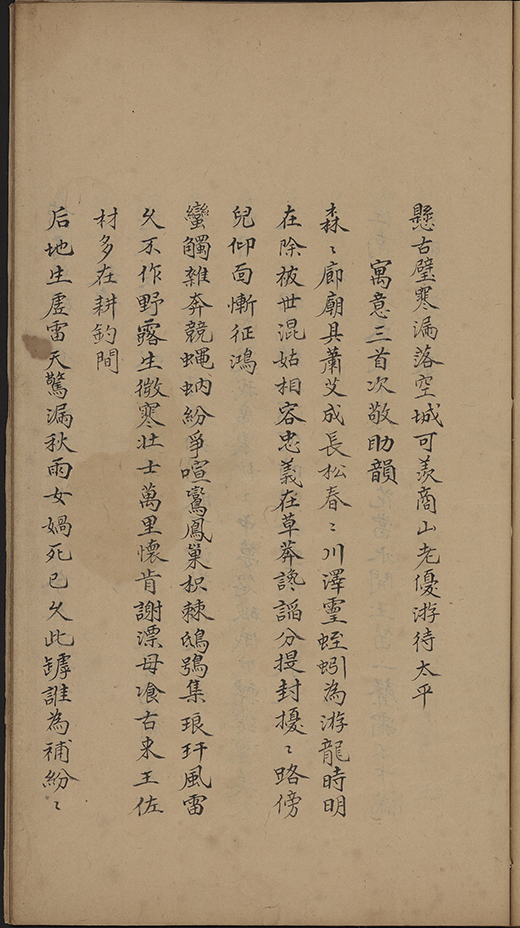 懸古壁寒漏落空城可羨商山老優游待太平
寓意三首次敬助韻
森〻廊廟具蕭艾成長松春〻川澤靈蛭蚓為游龍時明
在除祓世混姑相容忠義在草莽讒謟分提封擾〻路傍
兒仰面慚征鴻
蠻觸雜奔競蝿蚋紛爭喧鸞鳳巢枳棘鴟鴞集琅玕風雷
久不作野露生微寒壯士萬里懷肯謝漂母飡古来王佐
材多在耕釣間
后地生虛雷天驚漏秋雨女媧死已久此罅誰為補紛〻